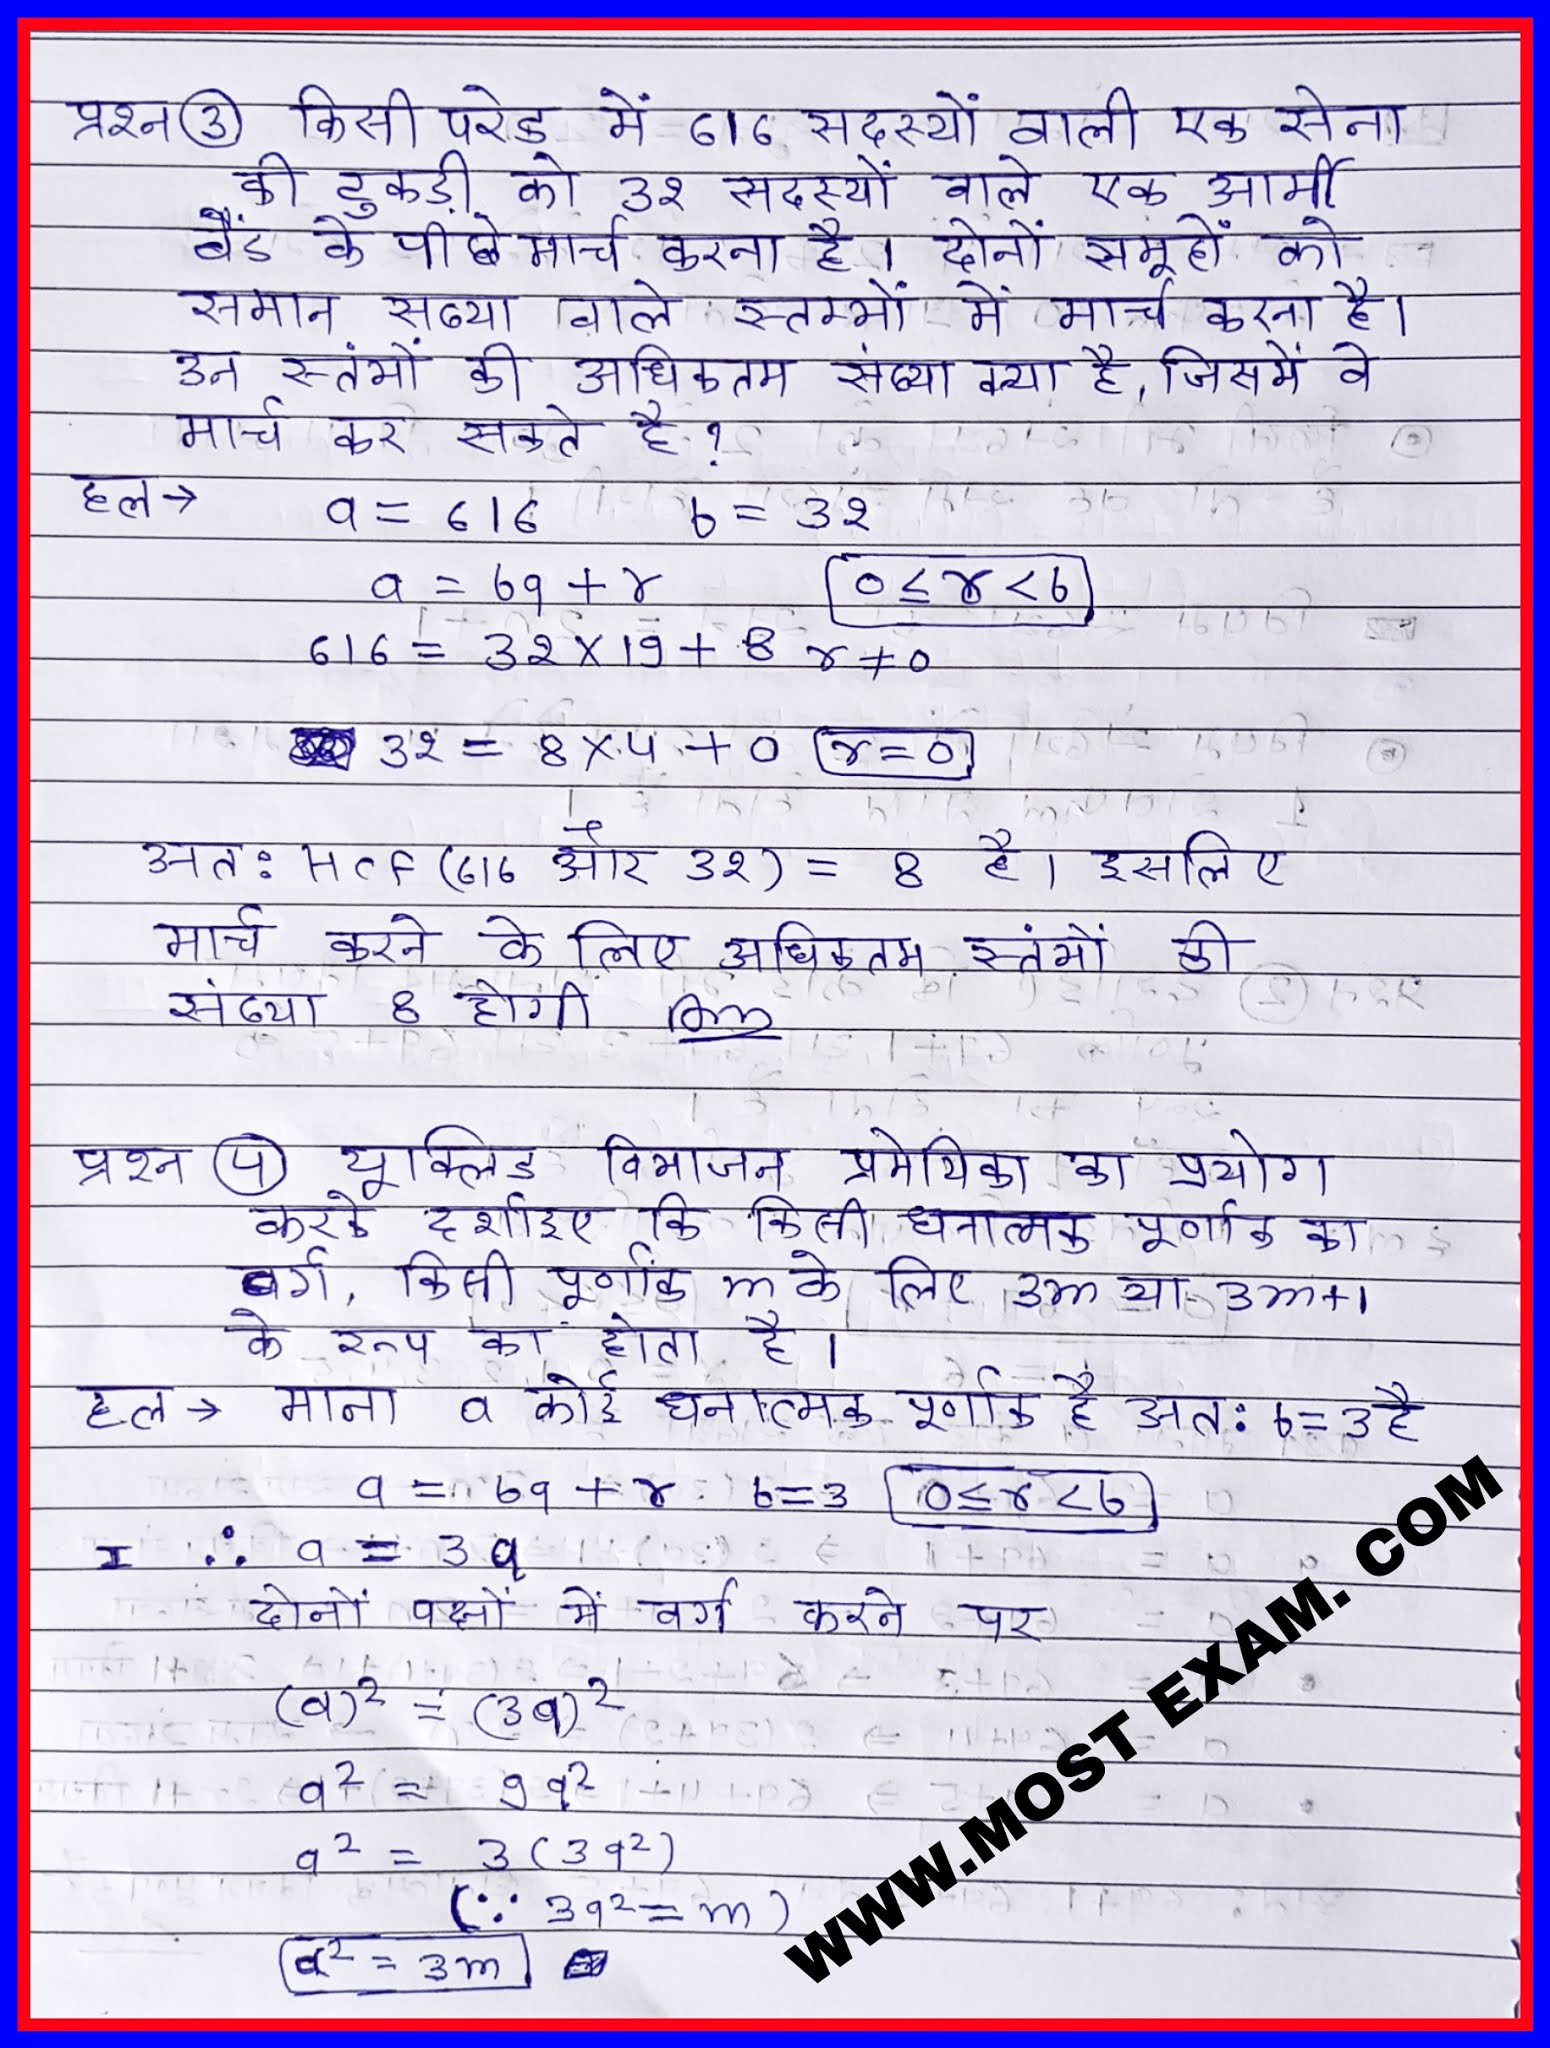 प्रश्न ③ किसी परेड में 616 सदस्यों वाली एक सेना
की टुकड़ी को 32 सदस्यों वाले एक आर्मी
बैंड के पीछे मार्च करना है। दोनों समूहों को
समान सख्या वाले स्तम्भों में मार्च करना है।
उन स्तंभों की अधिकतम संख्या क्या है, जिसमें वे
मार्च कर सकते है ?
हल → a = 616 b = 32
a = bq + r 0 ≤ r < b
616 = 32 × 19 + 8 r ≠ 0
32 = 8 × 4 + 0 r = 0
अतः HCF (616 और 32) = 8 है। इसलिए
मार्च करने के लिए अधिकतम स्तंभों की
संख्या 8 होगी Ans
प्रश्न ④ यूक्लिड विभाजन प्रमेयिका का प्रयोग
करके दर्शाइए कि किसी धनात्मक पूर्णाक का
वर्ग, किसी पूर्णांक m के लिए 3m या 3m+1
के रूप का होता है।
हल → माना a कोई धनात्मक पूर्णाक है अतः b = 3 है
a = bq + r b = 3 0 ≤ r < b
I ∴ a = 3q
दोनों पक्षों में वर्ग करने पर
(a)² = (3q)²
a² = 9q²
a² = 3(3q²)
(∵ 3q² = m)
a² = 3m
WWW.MOST EXAM. COM